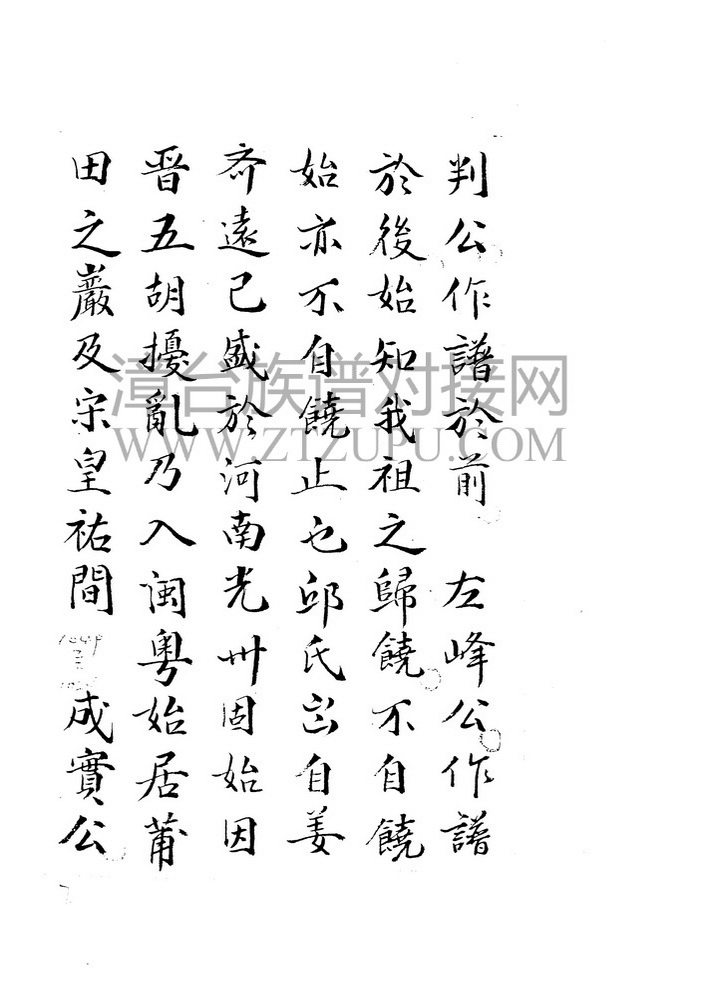 判公作譜於前　左峰公作譜
於後始知我祖之歸饒不自饒
始亦不自饒止也邱氏出自姜
齐遠已盛於河南光州固始因
晋五胡擾亂乃入闽粤始居莆
田之巖及宋皇祐間　成實公
漳台族谱对接网
WWW.ZTZUPU.COM